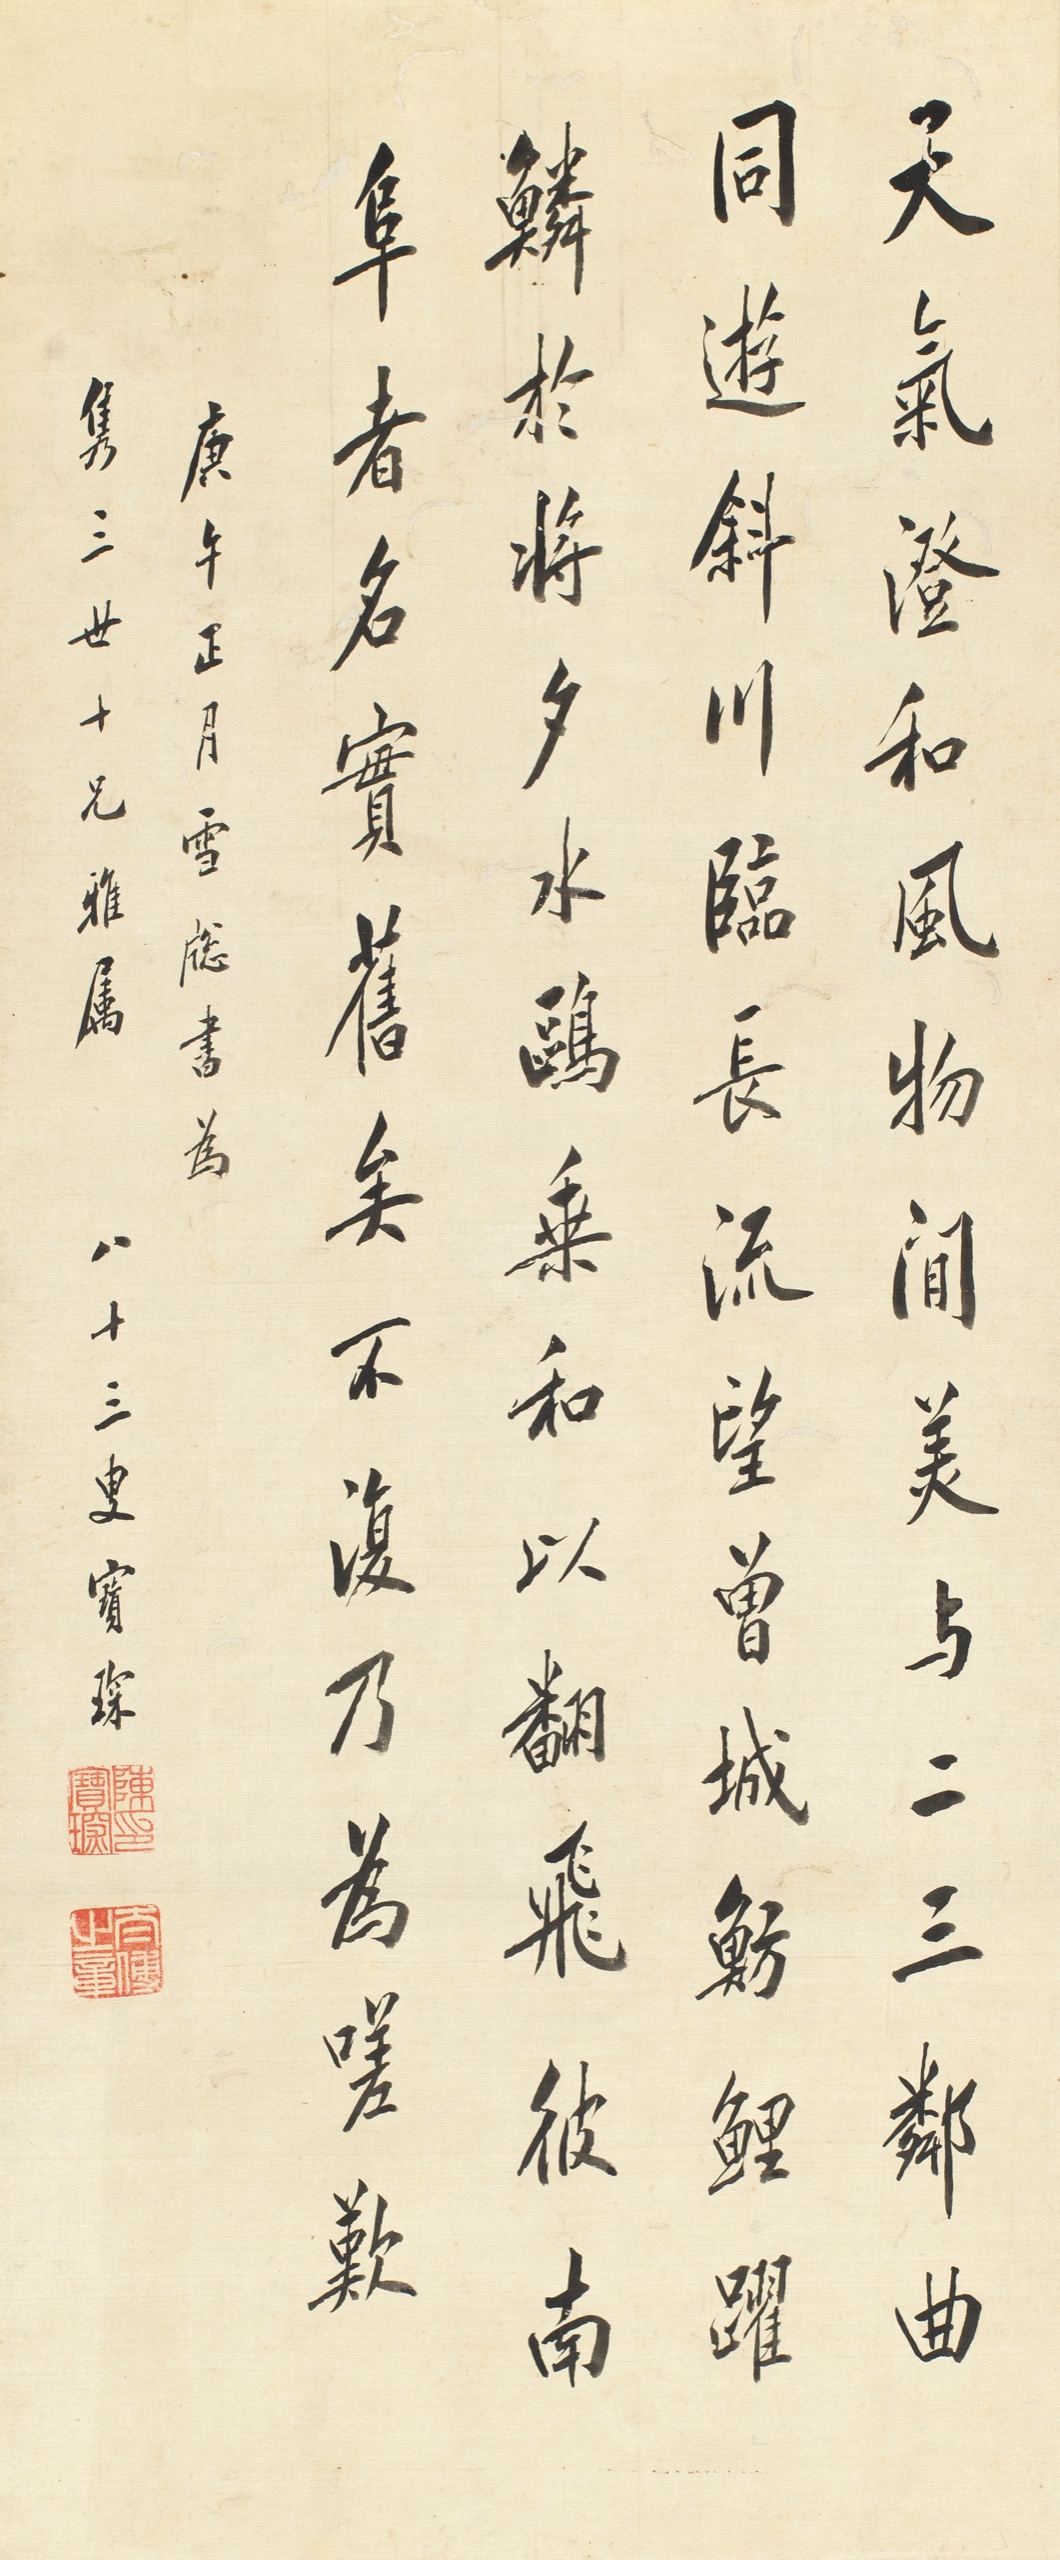 天氣澄和風物閒美与二三鄰曲
同遊斜川臨長流望曾城魴鯉躍
鱗於將夕水鷗乗和以翻飛彼南
阜者名實舊矣不復乃為嗟歎
庚午正月雪牕書為
雋三世十兄雅属
八十三叟寶琛
陳寶琛印
太傅之章